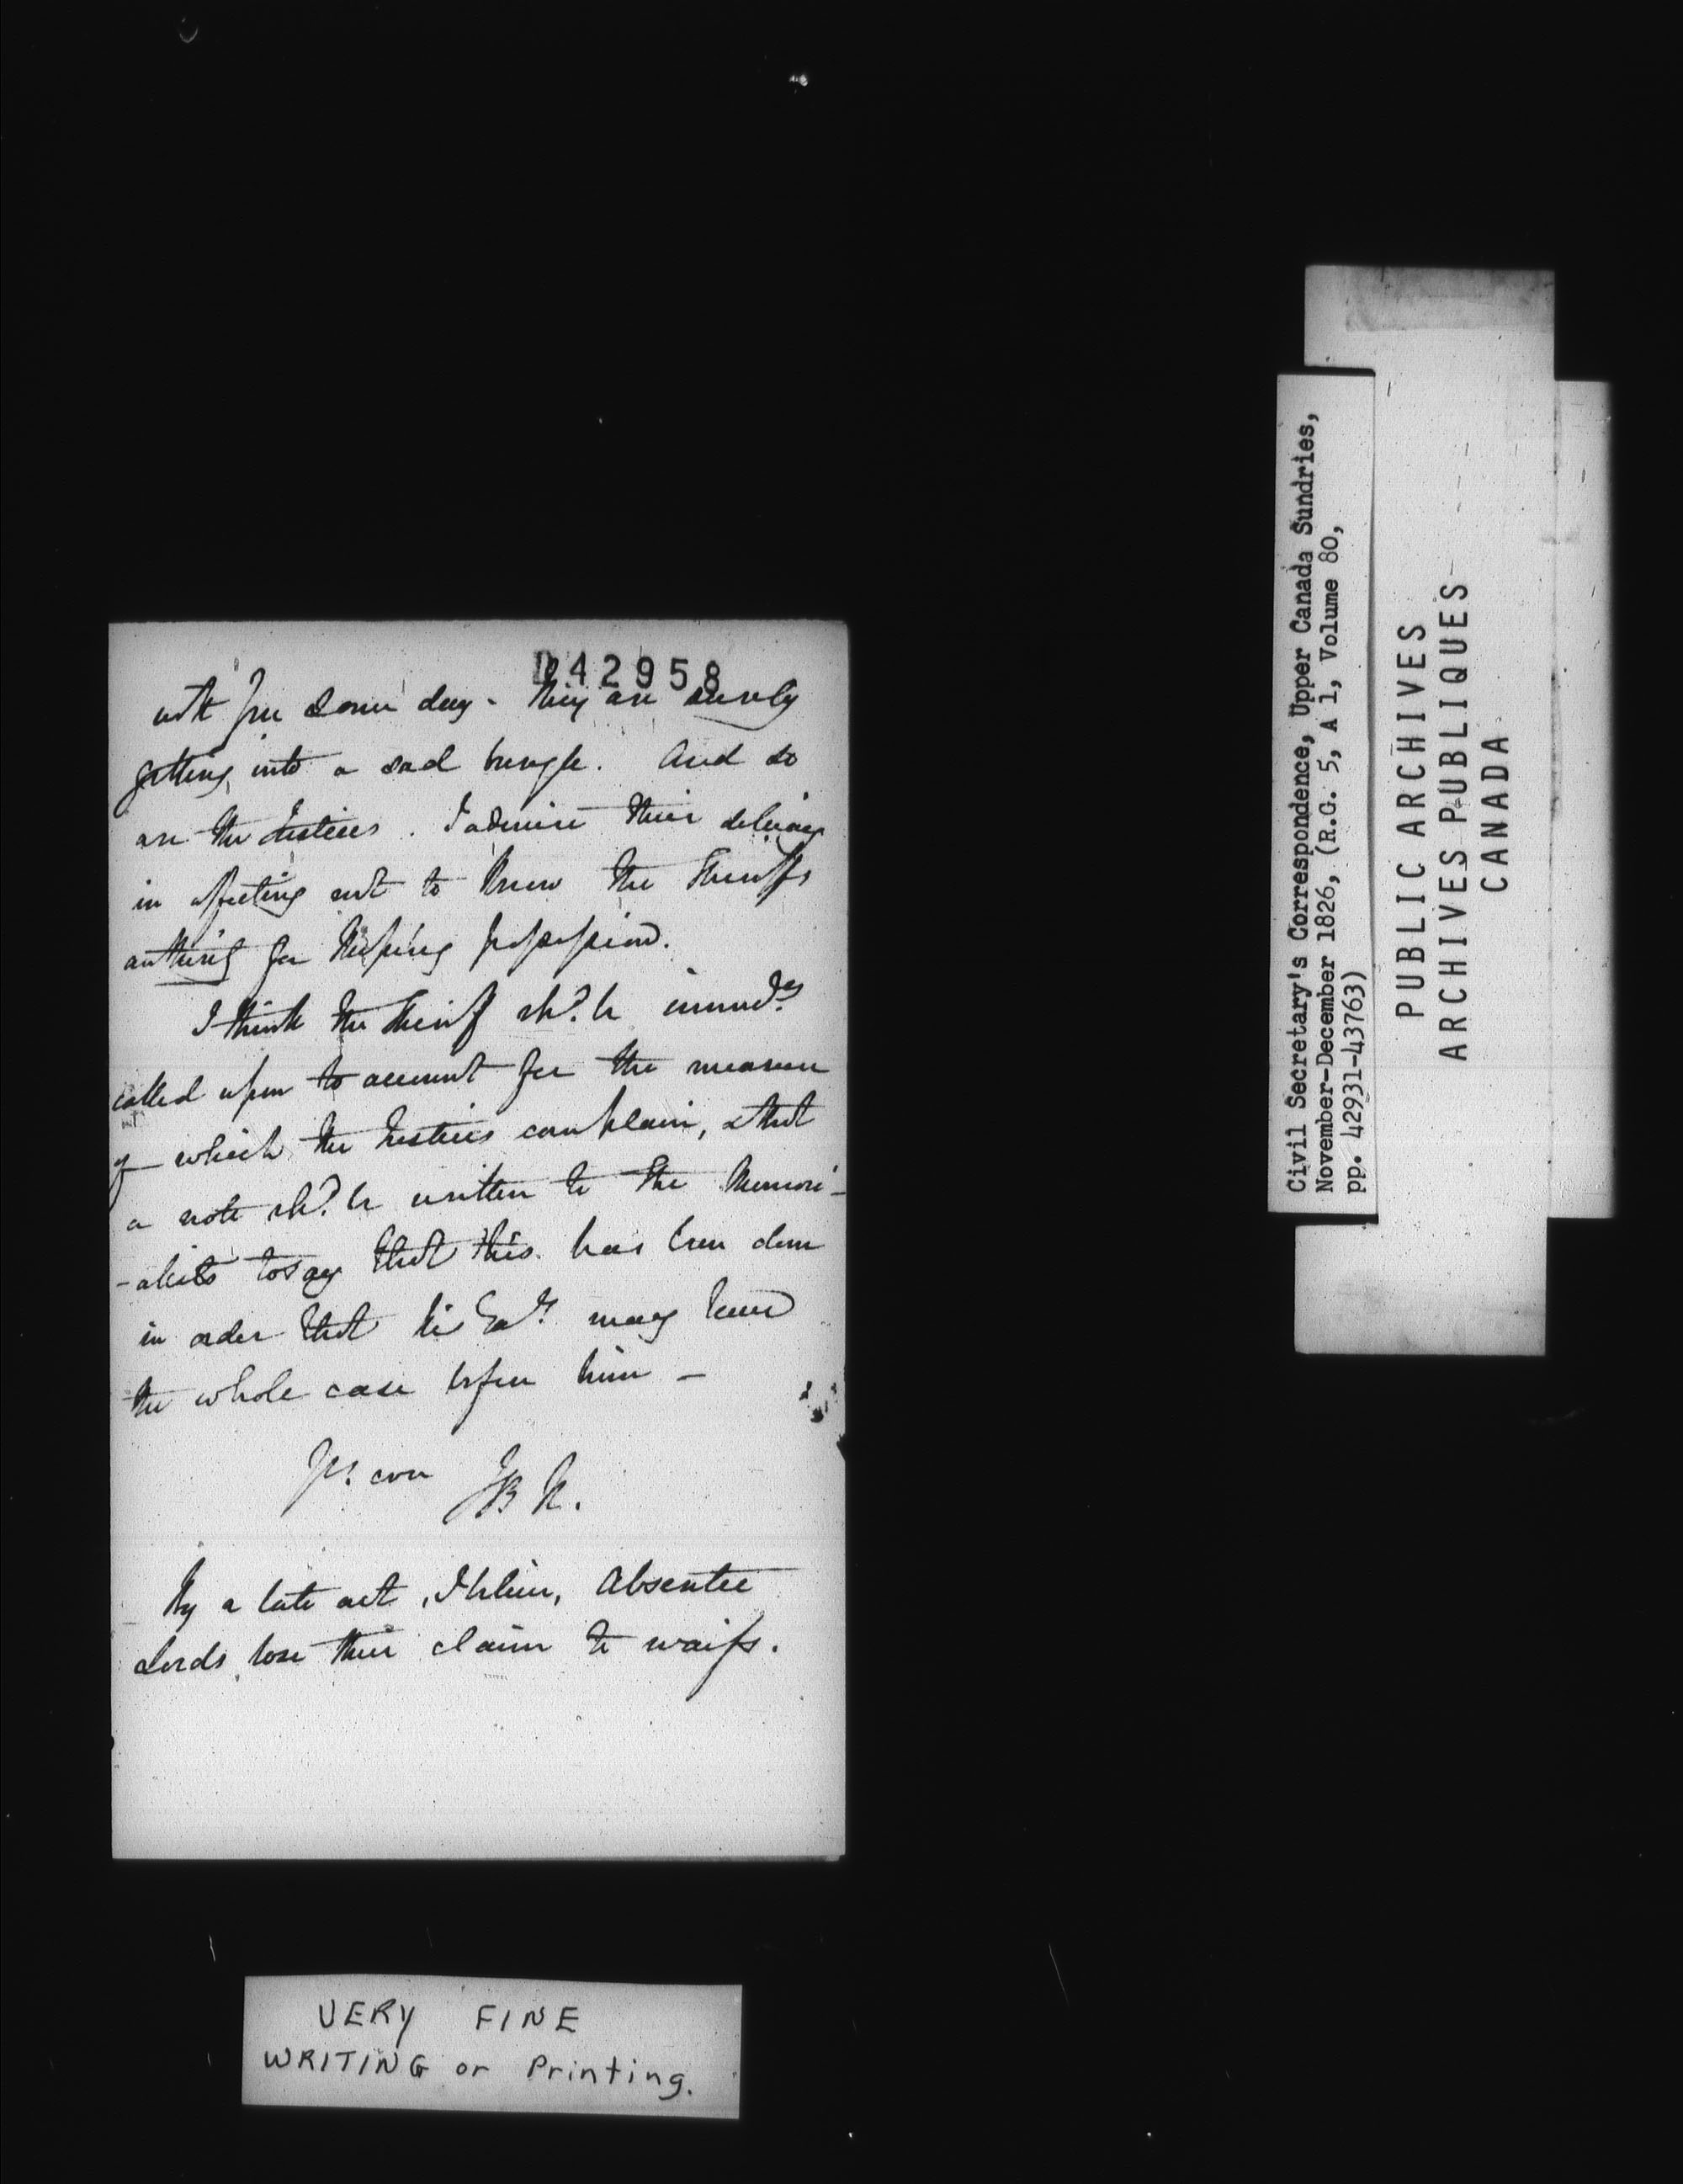 042958
with you some day - they are surely
getting into a sad bungle. And so
are the Justices. I admire their delicacy
in affecting not to know the Sheriffs
authority for keeping possession.
I think the Sheriff shd. be immedy
called upon to account for the measure
of which the Justices complain, & that
a note shd. be written to the Memori-
-alists to say that this has been done
in order that his Exy. may have
the whole case before him -
Yrs. ever JBR.
By a late act, I believe, Absentee
Lords lose their claim to waifs.
VERY FINE
WRITING or Printing.
Civil Secretary's Correspondence, Upper Canada Sundries,
November-December 1826, (R.G. 5, A 1, Volume 80,
pp. 42931-437763)
PUBLIC ARCHIVES
ARCHIVES PUBLIQUES
CANADA